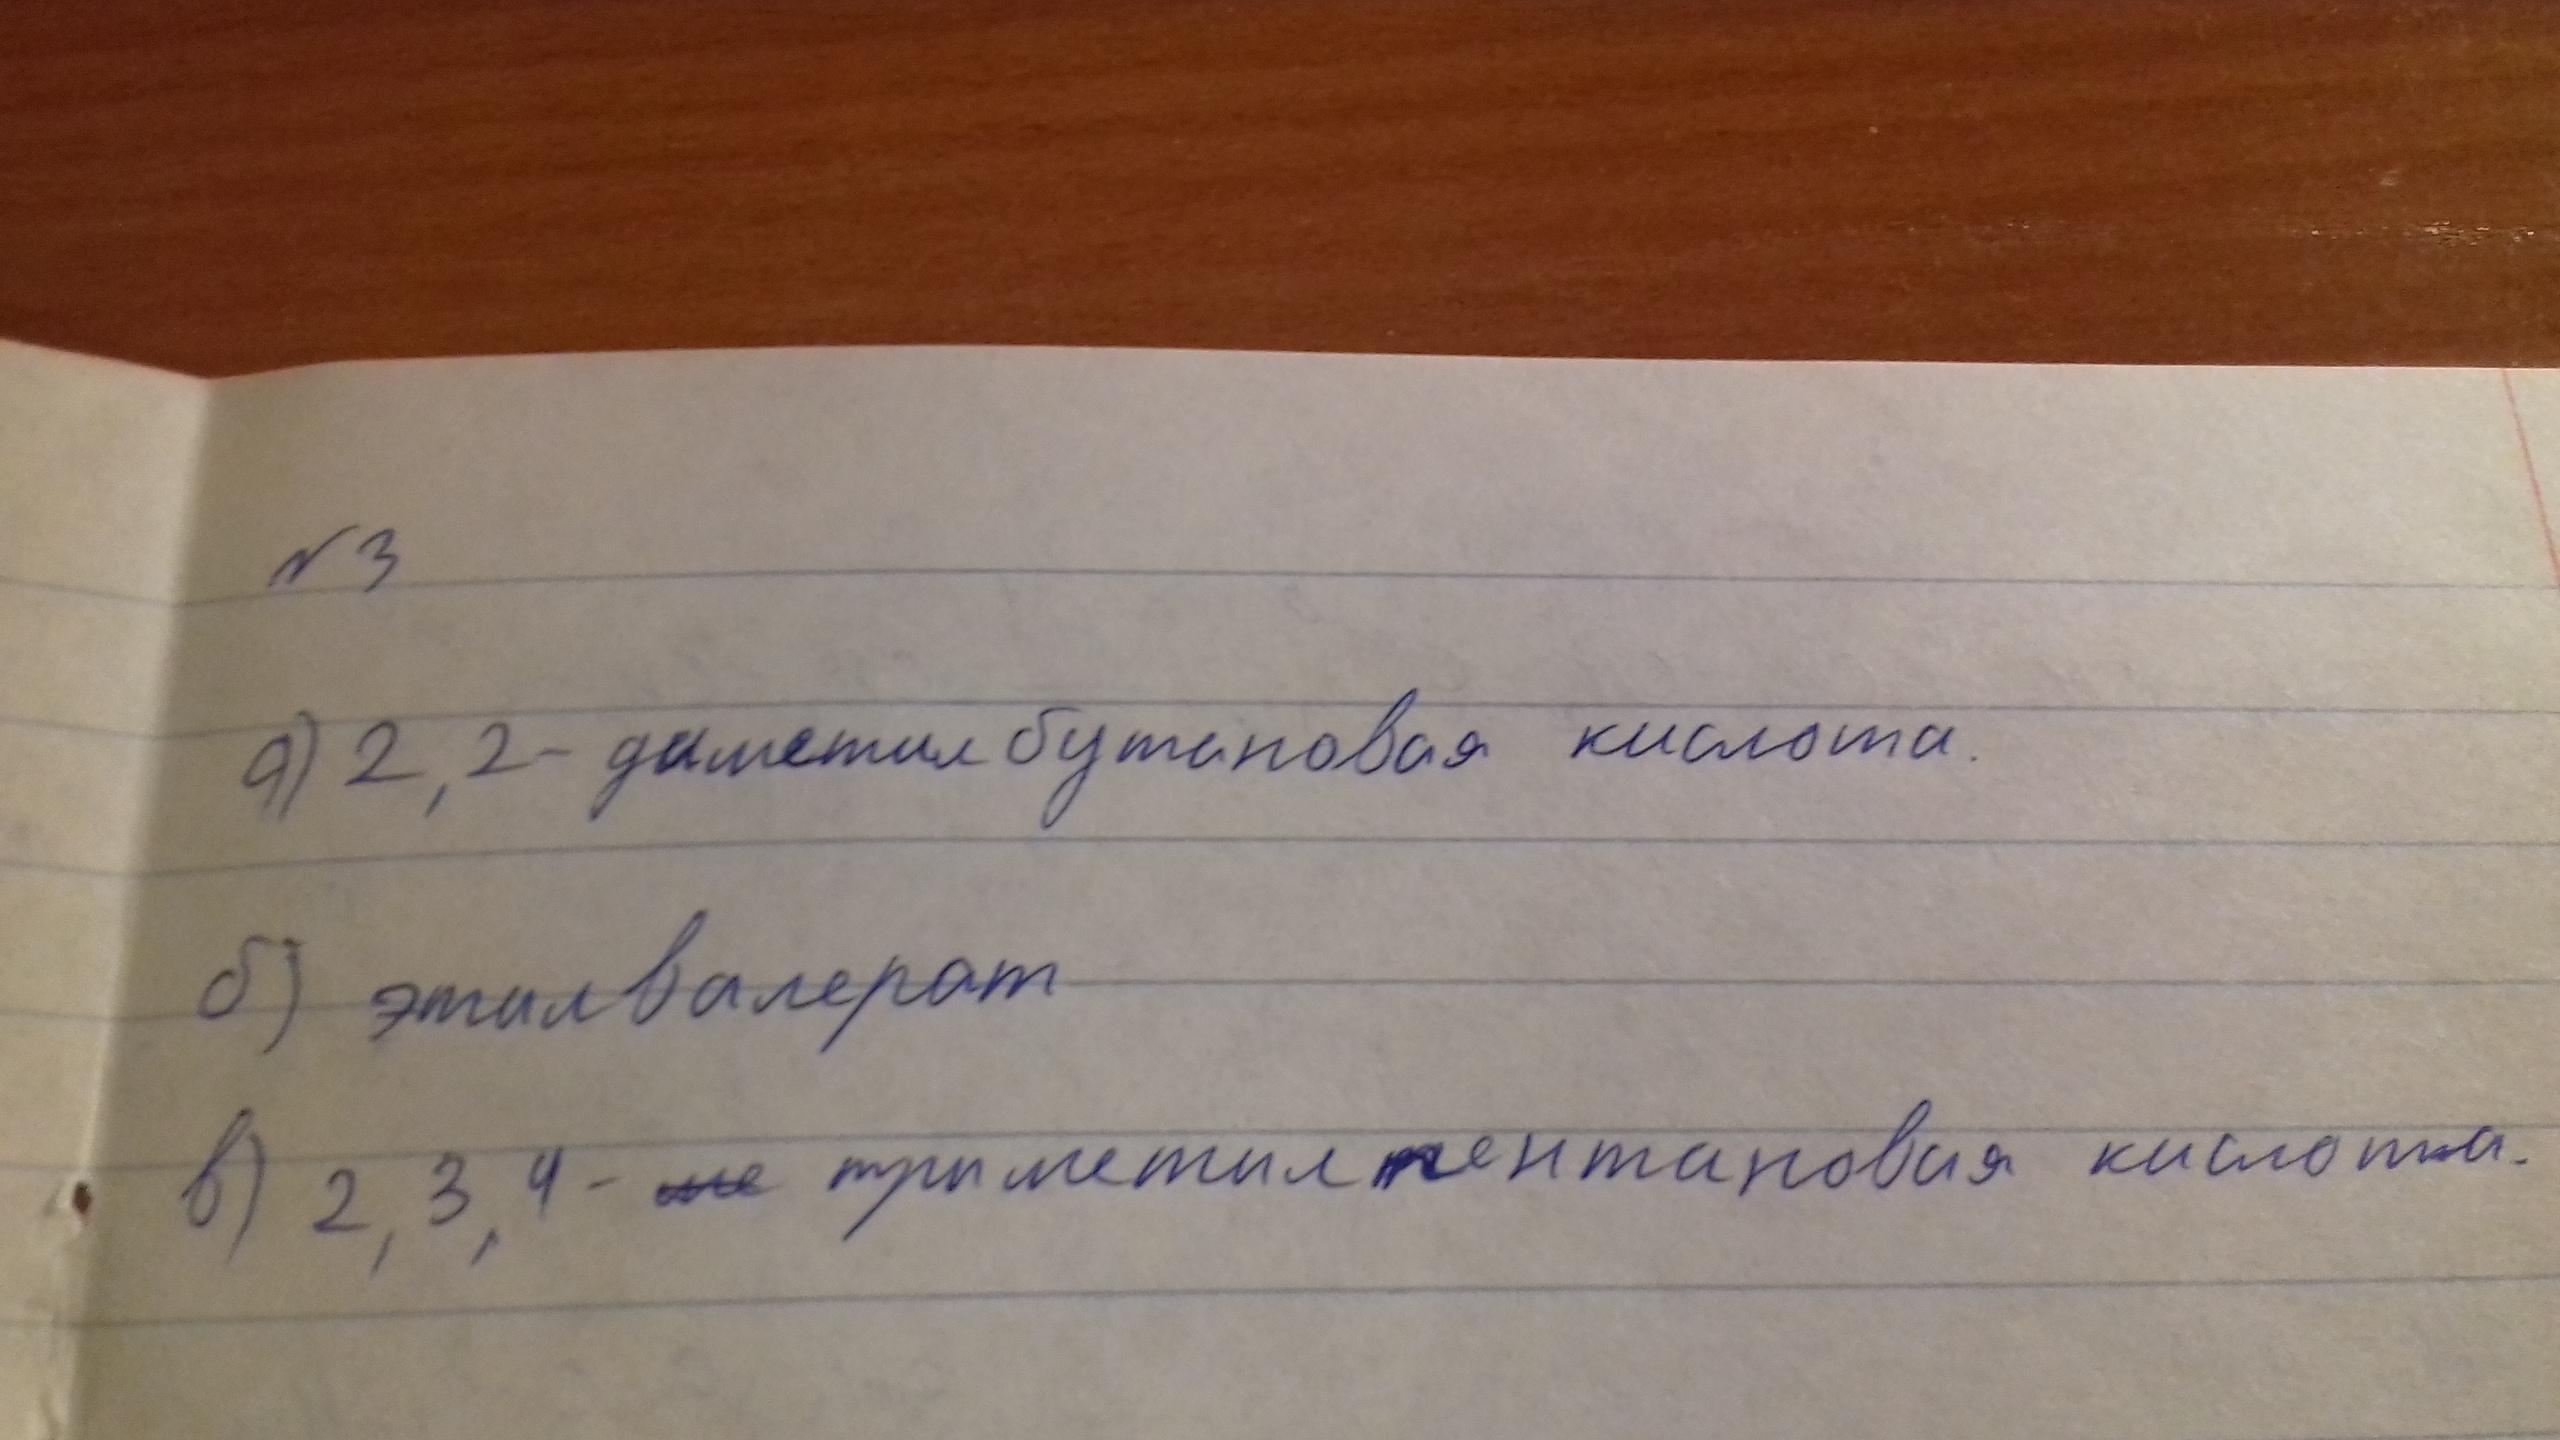 №3
а) 2,2-диметилбутановая кислота.
б) этилвалерат
в) 2,3,4- триметилпентановая кислота.